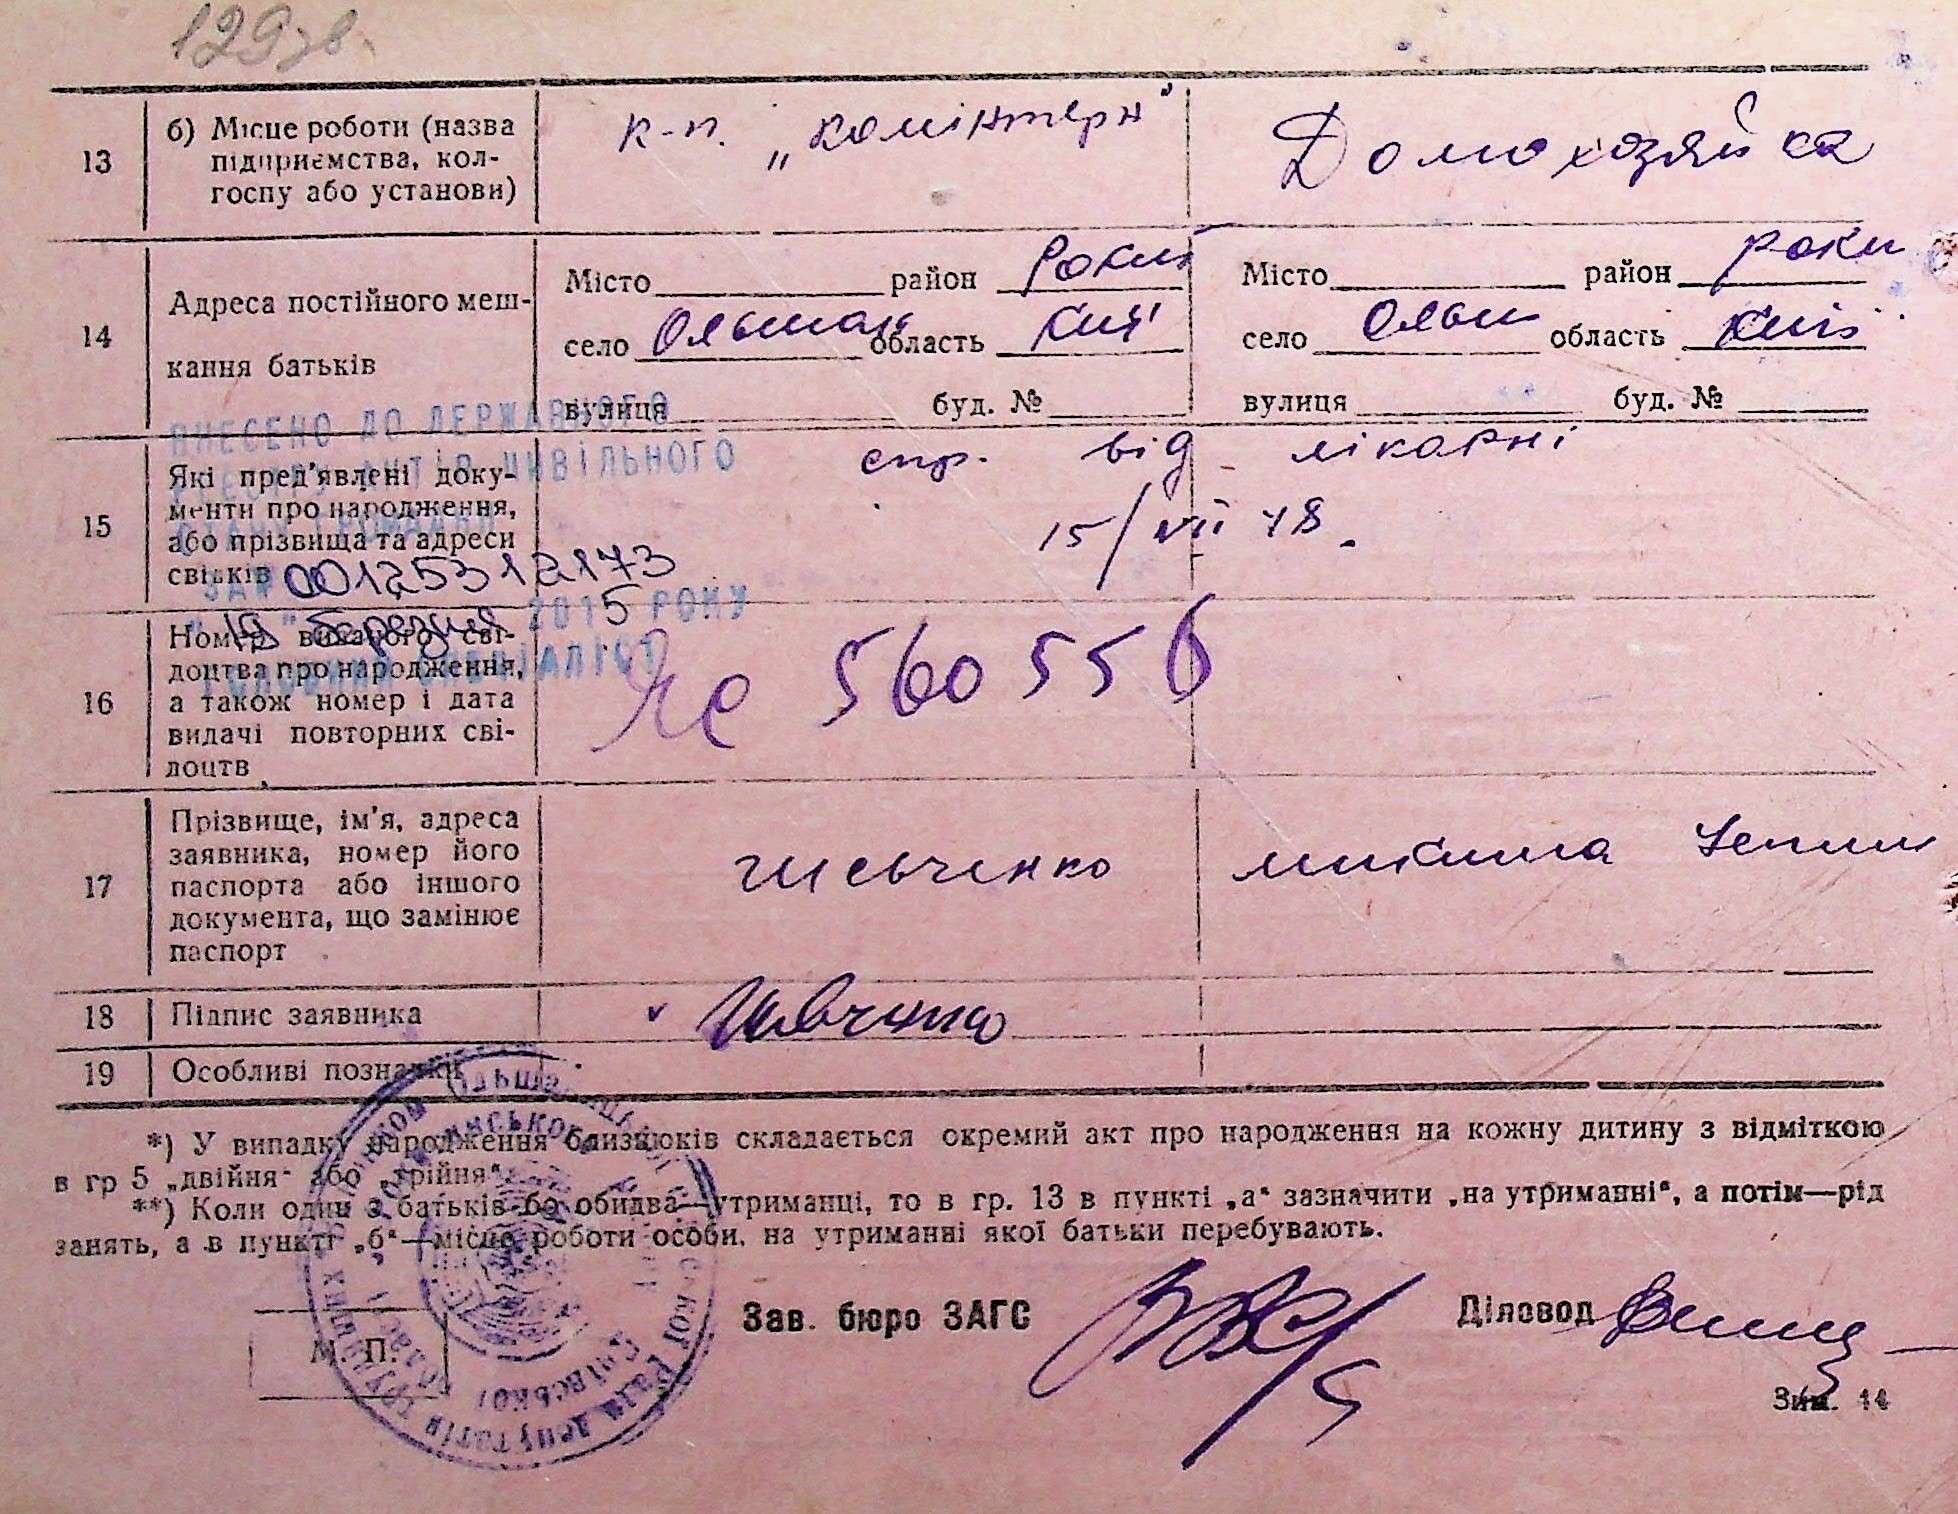 129 зв.
13
б) Місце роботи (назва
підприємства, кол-
госпу або установи)
к-п. „Комінтерн"
Домохозяйка
14
Адреса постійного меш-
кання батьків
Місто район Рокит
село Ольшан область Київ
вулиця буд. №
Місто район Роки
село Ольш область Київ
вулиця буд. №
ВНЕСЕНО ДО ДЕРЖАВНОГО
РЕЄСТРУ АКТІВ ЦИВІЛЬНОГО
СТАНУ ГРОМАДЯН
ЗА № 00125312173
"19" березня 2015 РОКУ
ГОЛОВНИЙ СПЕЦІАЛІСТ
15
Які пред'явлені доку-
менти про народження,
або прізвища та адреси
свідків
спр. від лікарні
15/VII 48.
16
Номер виданого сві-
доцтва про народження,
а також номер і дата
видачі повторних сві-
доцтв
560556
17
Прізвище, ім'я, адреса
заявника, номер його
паспорта або іншого
документа, що замінює
паспорт
Шевченко Микита
18
Підпис заявника
v Шевченко
19
Особливі познаки
*) У випадку народження близнюків складається окремий акт про народження на кожну дитину з відміткою
в гр 5 „двійня" або „трійня".
**) Коли один з батьків бо обидва—утриманці, то в гр. 13 в пункті „а" зазначити „на утриманні", а потім—рід
занять, а в пункті „б"—місце роботи особи, на утриманні якої батьки перебувають.
М. П.
Зав. бюро ЗАГС
Діловод
Зам. 44